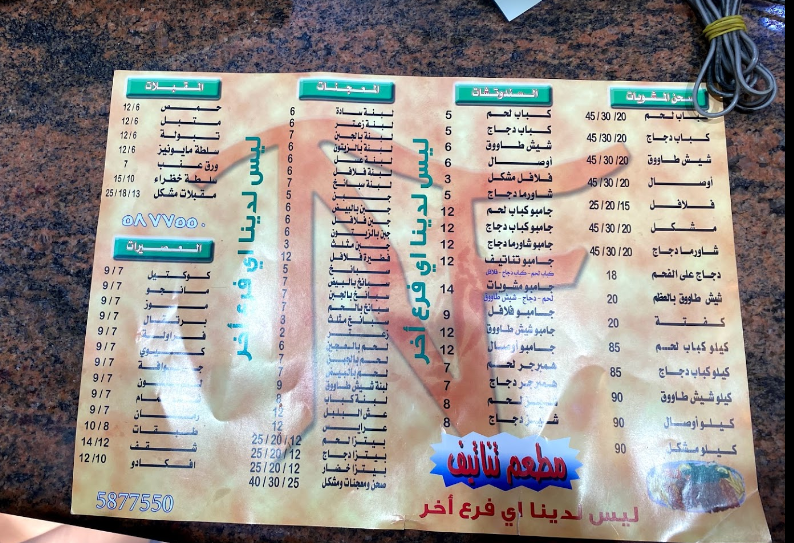 صحن المشويات
كباب لحم 45/30/20
كباب دجاج 45/30/20
شيش طاووق 45/30/20
أوصال 45/30/20
فلافل 25/20/15
مشكل 45/30/20
شاورما دجاج 45/30/20
دجاج على الفحم 18
شيش طاووق بالعظم 20
كفتة 20
كيلو كباب لحم 85
كيلو كباب دجاج 85
كيلو شيش طاووق 90
كيلو أوصال 90
كيلو مشكل 90
السندوتشات
كباب لحم 5
كباب دجاج 5
شيش طاووق 6
أوصال 6
فلافل مشكل 3
شاورما دجاج 5
جامبو كباب لحم 12
جامبو كباب دجاج 12
جامبو شاورما دجاج 12
جامبو نتاتيف 12
كباب لحم - كباب دجاج - فلافل
جامبو مشويات 14
لحم - دجاج - شيش طاووق
جامبو فلافل 9
جامبو شيش طاووق 12
جامبو أوصال 12
همبرجر لحم 7
همبرجر دجاج 7
لحم 8
دجاج 8
المعجنات
لبنة سادة 6
لبنة زعتر 6
لبنة بالجبن 7
لبنة بالزيتون 6
لبنة عسل 6
لبنة فلافل 6
لبنة سبانخ 7
جبن 5
جبن بالبيض 6
جبن فلافل 6
جبن بالزيتون 6
جبن مثلث 3
فطيرة فلافل 12
سبانخ 5
سبانخ بالبيض 7
سبانخ بالجبن 7
سبانخ بالحم 7
سبانخ مثلث 3
زعتر 2
لحم بالعجين 6
لحم بالجبن 7
لحم بالبيض 7
لبنة شيش طاووق 9
لبنة كباب 8
عش البلبل 12
عرايس 12
بيتزا لحم 25/20/12
بيتزا دجاج 25/20/12
بيتزا خضار 25/20/12
صحن ومعجنات ومشكل 40/30/25
المقبلات
حمص 12/6
متبل 12/6
تبولة 12/6
سلطة مايونيز 12/6
ورق عنب 7
سلطة خظراء 15/10
مقبلات مشكل 25/18/13
٥٨٧٧٥٥٠
العصيرات
كوكتيل 9/7
مانجو 9/7
موز 9/7
برتقال 9/7
فراولة 9/7
كيوي 9/7
جوافة 9/7
ليمون 9/7
9/7
رمان 9/7
طبقات 10/8
شقف 14/12
افكادو 12/10
5877550
ليس لدينا اي فرع أخر
ليس لدينا اي فرع أخر
مطعم نتاتيف
ليس لدينا اي فرع أخر